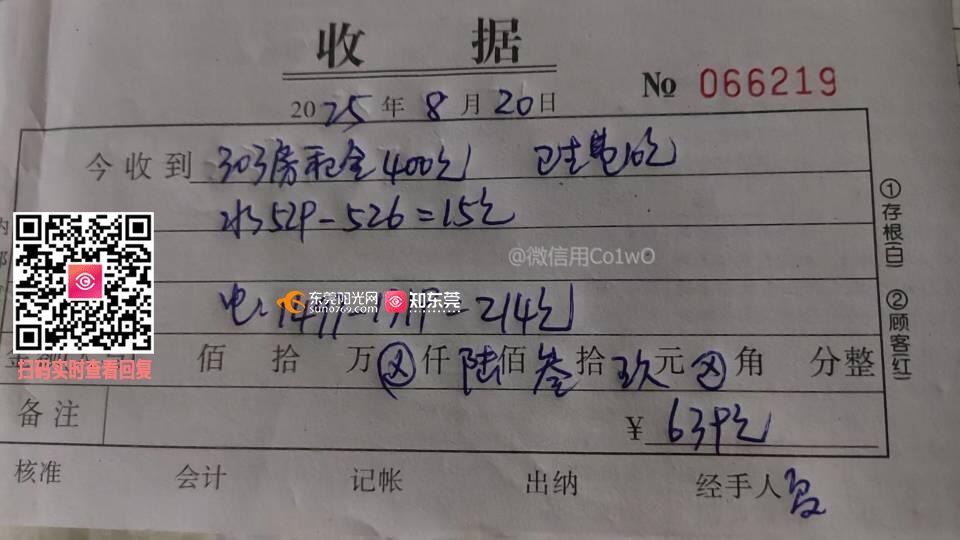 收 据
№ 066219
2025年8月20日
今收到 303房租金400元 卫生费10元
水529-526=15元
@微信用Co1wO
电: 214元
东莞阳光网 sun0769.com 知东莞
佰 拾 万 ⊗ 仟 陆 佰 叁 拾 玖 元 ⊗ 角 分整
扫码实时查看回复
备注
¥ 639元
核准 会计 记帐 出纳 经手人
①存根(白) ②顾客(红)